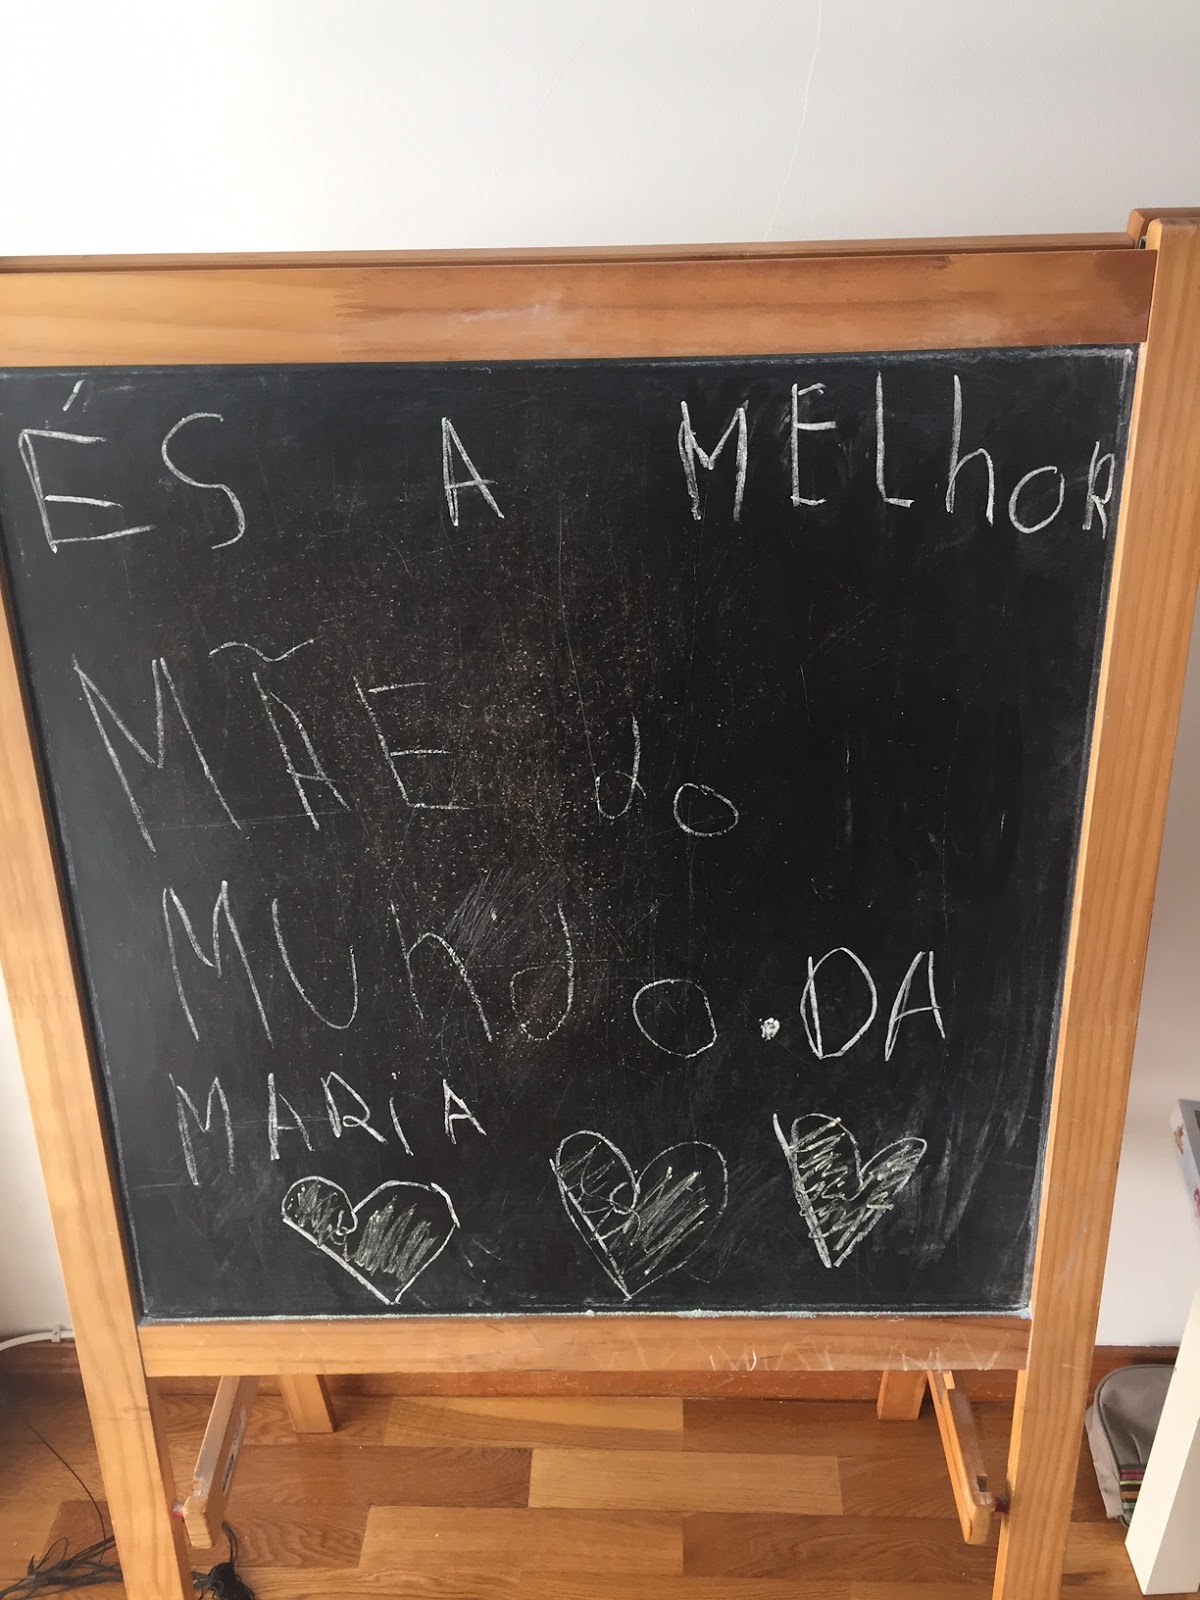 ÉS A MELhOR
MÃE do
MUndo. DA
MARiA